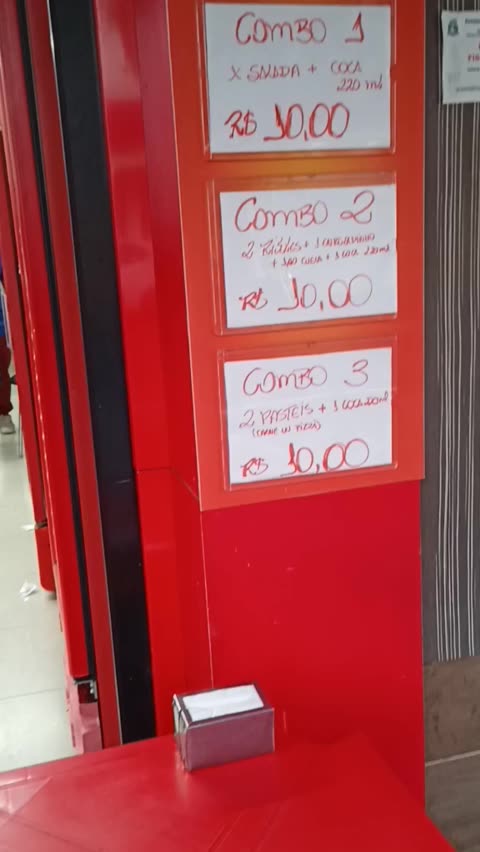 COMBO 1
X SALADA + COCA
220 ml
R$ 10,00
COMBO 2
2 + 1
+ + 1 COCA 220 ml
R$ 10,00
COMBO 3
2 PASTEIS + 1 COCA 220 ml
(CARNE OU PIZZA)
R$ 10,00